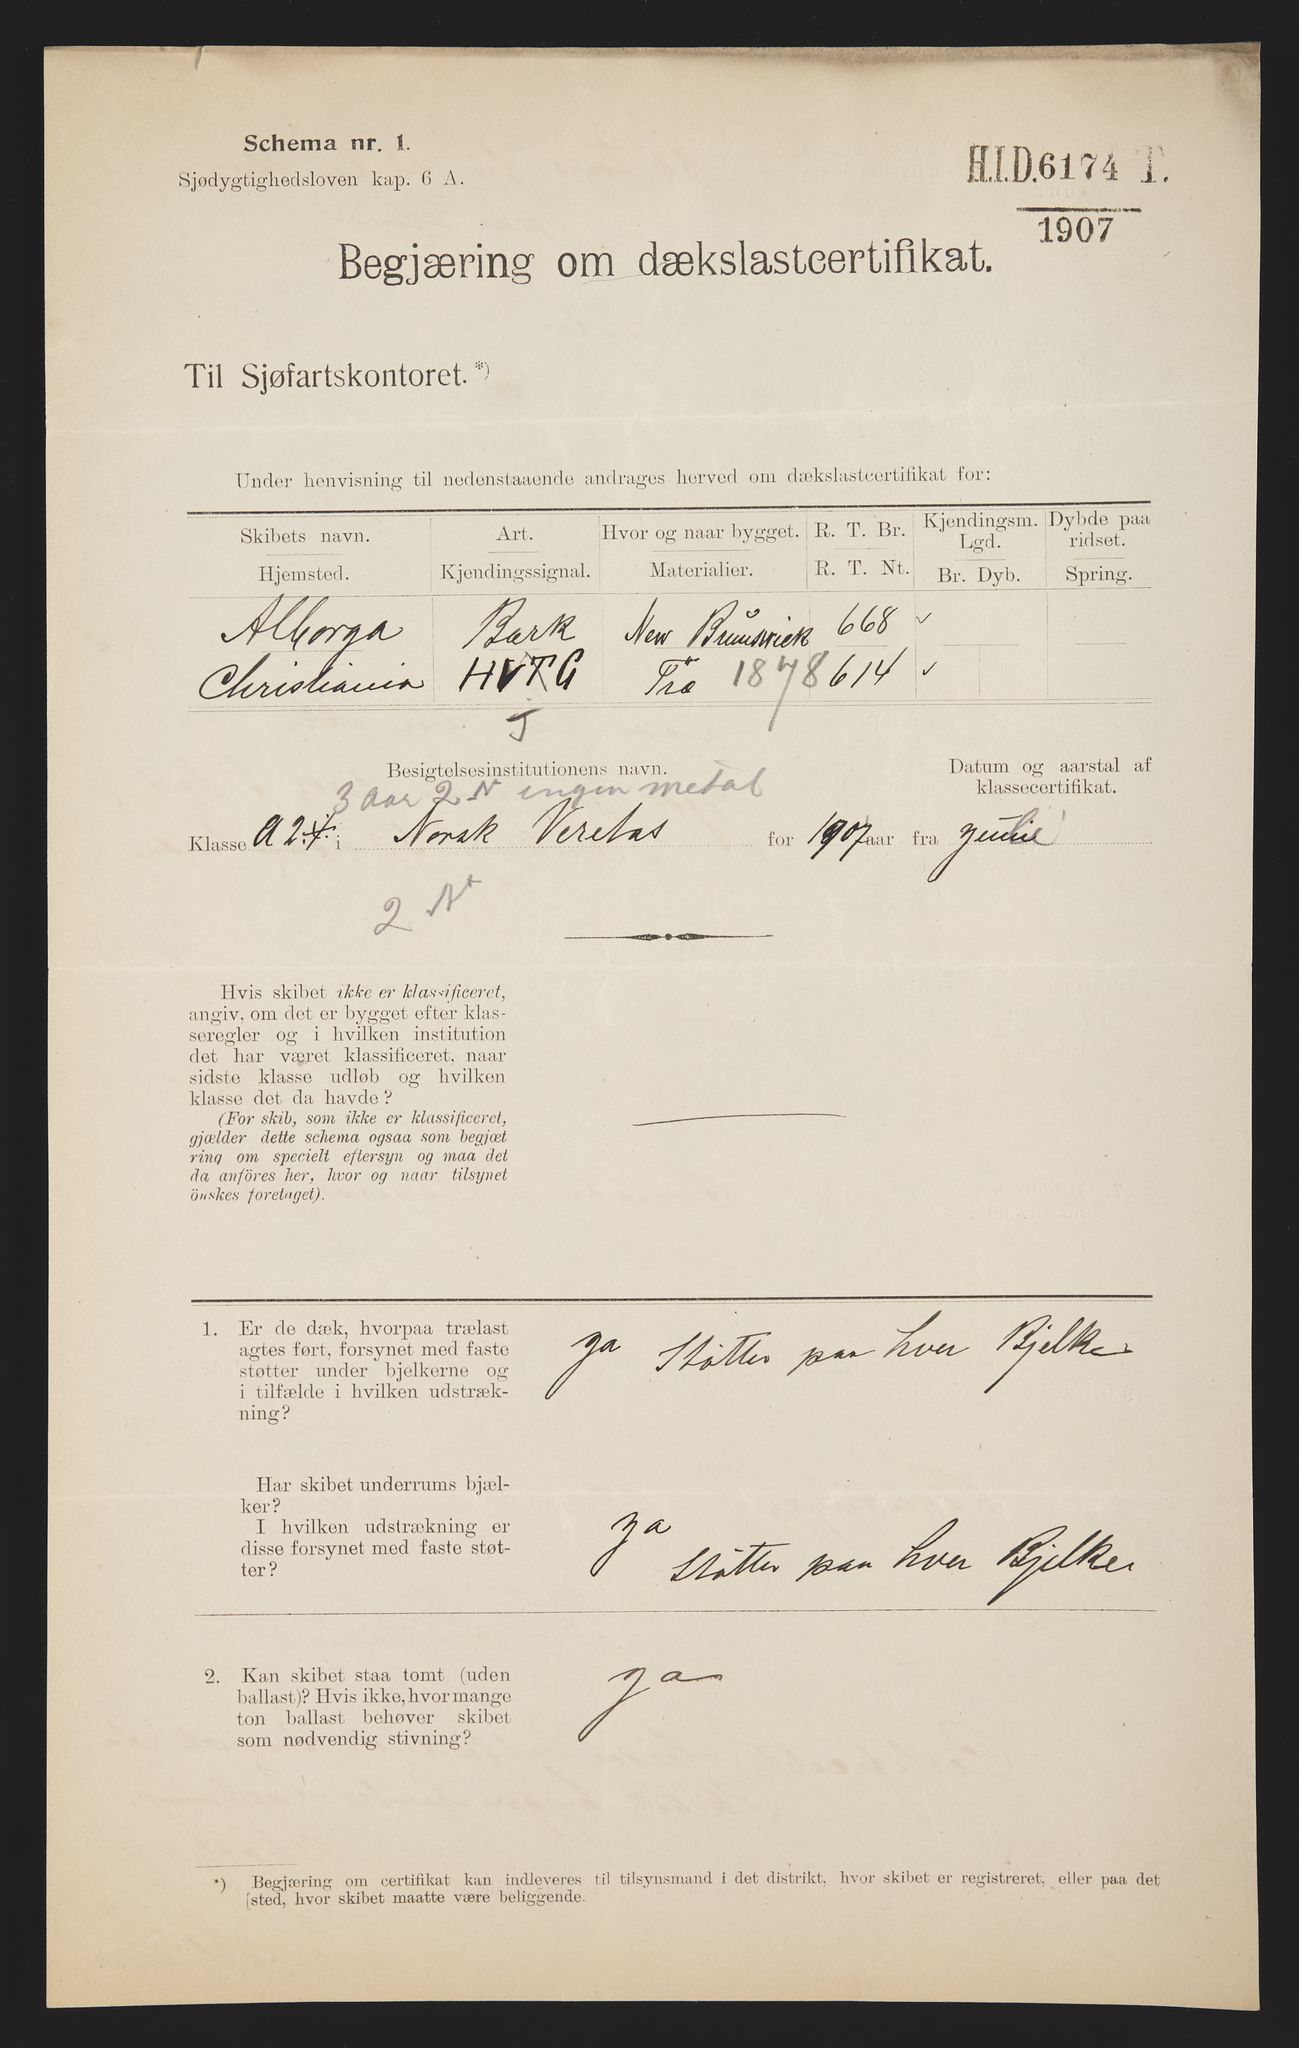 Schema nr. 1.
Sjødygtighedsloven kap. 6 A.
H.I.D. 6174 T.
1907
Begjæring om dækslastcertifikat.
Til Sjøfartskontoret.*)
Under henvisning til nedenstaaende andrages herved om dækslastcertifikat for:
Skibets navn. Art. Hvor og naar bygget. R. T. Br. Kjendingsm. Lgd. Dybde paa ridset.
Hjemsted. Kjendingssignal. Materialier. R. T. Nt. Br. Dyb. Spring.
Alborga Bark New Brunswick 668 ✓
Christiania HVTG Træ 1878 614 ✓
J
Besigtelsesinstitutionens navn. Datum og aarstal af
klassecertifikat.
3 aar 2 N ingen metal
Klasse A 2. i Norsk Veritas for 1907 aar fra
2 N
Hvis skibet ikke er klassificeret,
angiv, om det er bygget efter klas-
seregler og i hvilken institution
det har været klassificeret, naar
sidste klasse udløb og hvilken
klasse det da havde?
(For skib, som ikke er klassificeret,
gjælder dette schema ogsaa som begjæt
ring om specielt eftersyn og maa det
da anföres her, hvor og naar tilsynet
önskes foretaget).
1. Er de dæk, hvorpaa trælast
agtes ført, forsynet med faste
støtter under bjelkerne og
i tilfælde i hvilken udstræk-
ning?
ja Støtter paa hver Bjelke
Har skibet underrums bjæl-
ker?
I hvilken udstrækning er
disse forsynet med faste støt-
ter?
ja
Støtter paa hver Bjelke
2. Kan skibet staa tomt (uden
ballast)? Hvis ikke, hvor mange
ton ballast behøver skibet
som nødvendig stivning?
ja
*) Begjæring om certifikat kan indleveres til tilsynsmand i det distrikt, hvor skibet er registreret, eller paa det
[sted, hvor skibet maatte være beliggende.